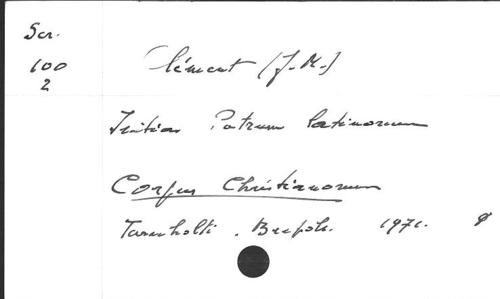 Scr.
100
2
Clément (J.-M.)
Initia Patrum latinorum
Corpus Christianorum
Turnholti. Brepols. 1971.